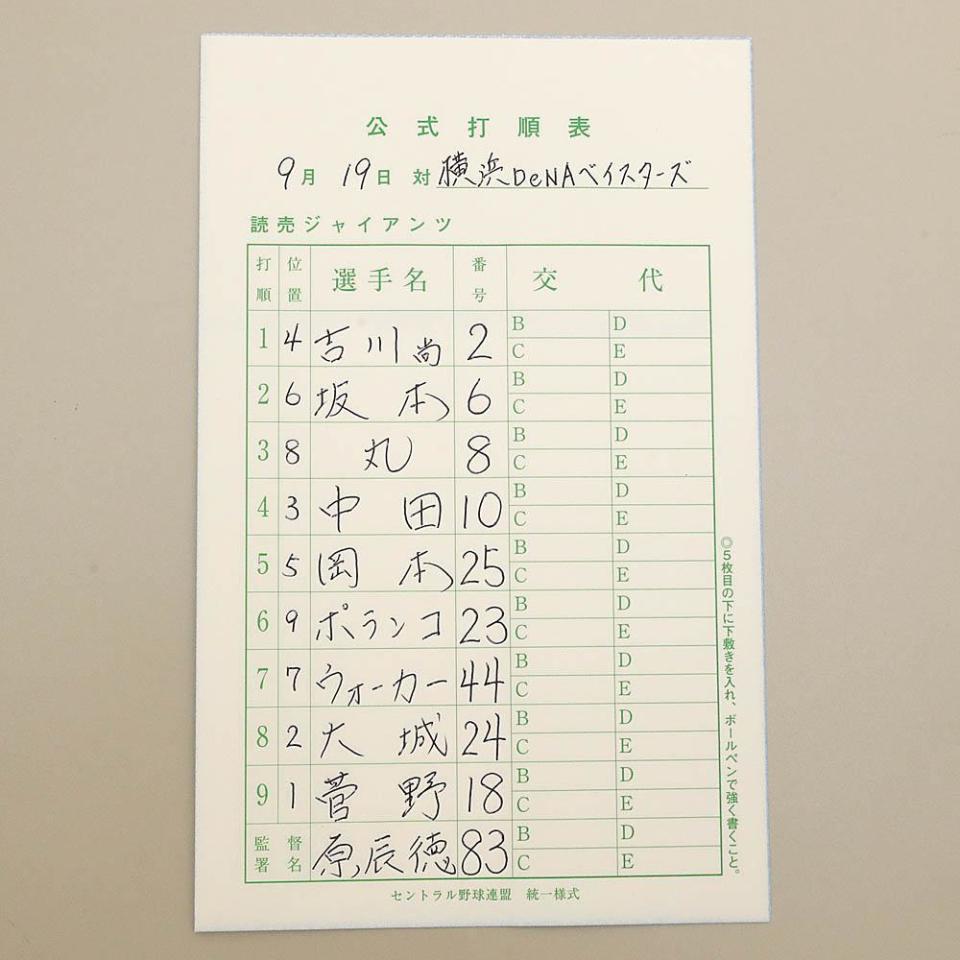 公式打順表
9月 19日 対 横浜DeNAベイスターズ
読売ジャイアンツ
打順 位置 選手名 番号 交代
1 4 吉川尚 2 B D
C E
2 6 坂本 6 B D
C E
3 8 丸 8 B D
C E
4 3 中田 10 B D
C E
5 5 岡本 25 B D
C E
6 9 ポランコ 23 B D
C E
7 7 ウォーカー 44 B D
C E
8 2 大城 24 B D
C E
9 1 菅野 18 B D
C E
監督署名 原辰徳 83 B D
C E
◎5枚目の下に下敷きを入れ、ボールペンで強く書くこと。
セントラル野球連盟 統一様式